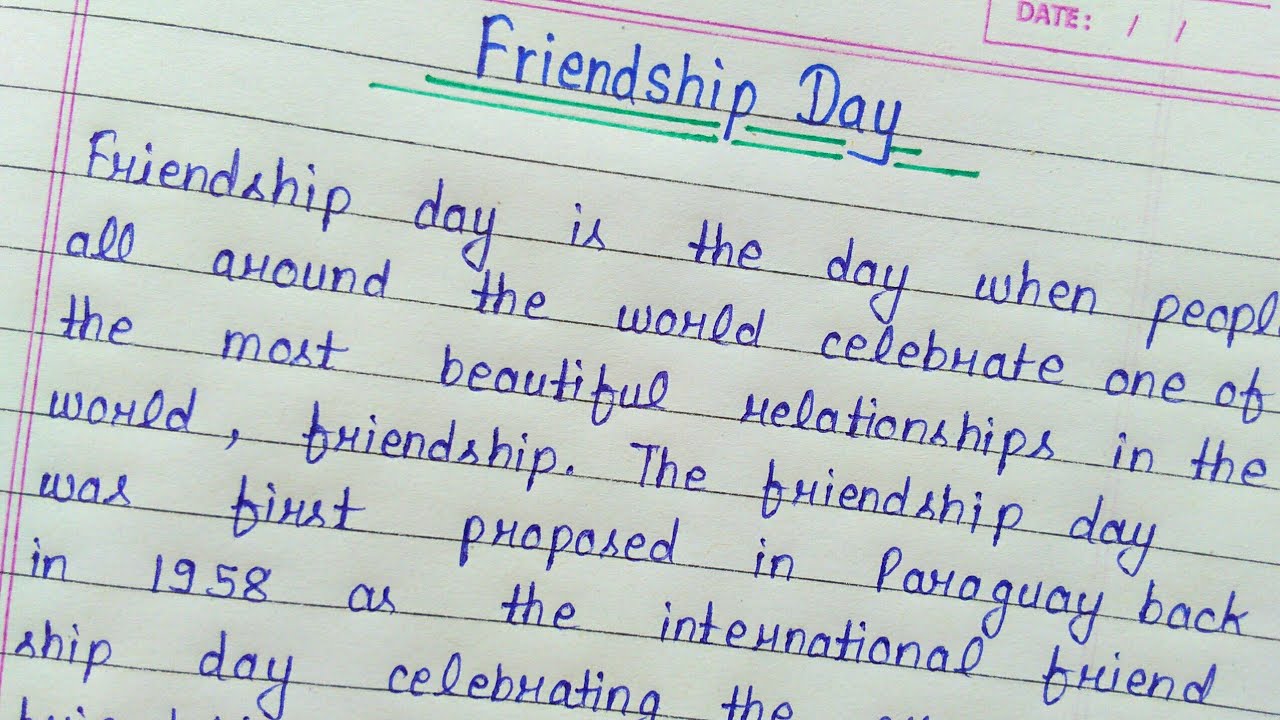 DATE: / /
Friendship Day
Friendship day is the day when peopl
all around the world celebrate one of
the most beautiful relationships in the
world, friendship. The friendship day
was first proposed in Paraguay back
in 1958 as the international friend
ship day celebrating the